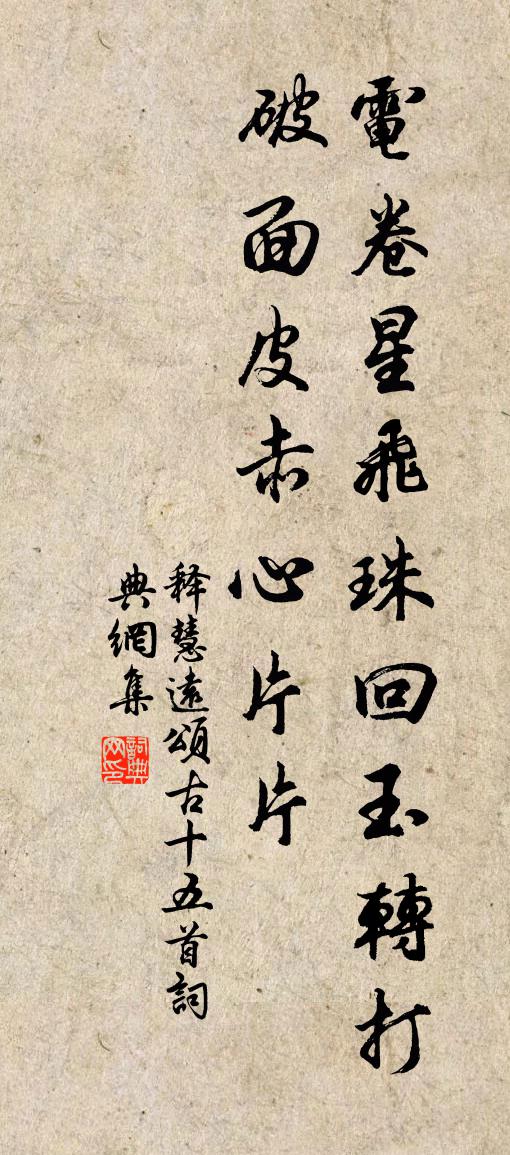 電卷星飛珠回玉轉打
破面皮赤心片片
释慧遠頌古十五首詞
典網集
詞典網印